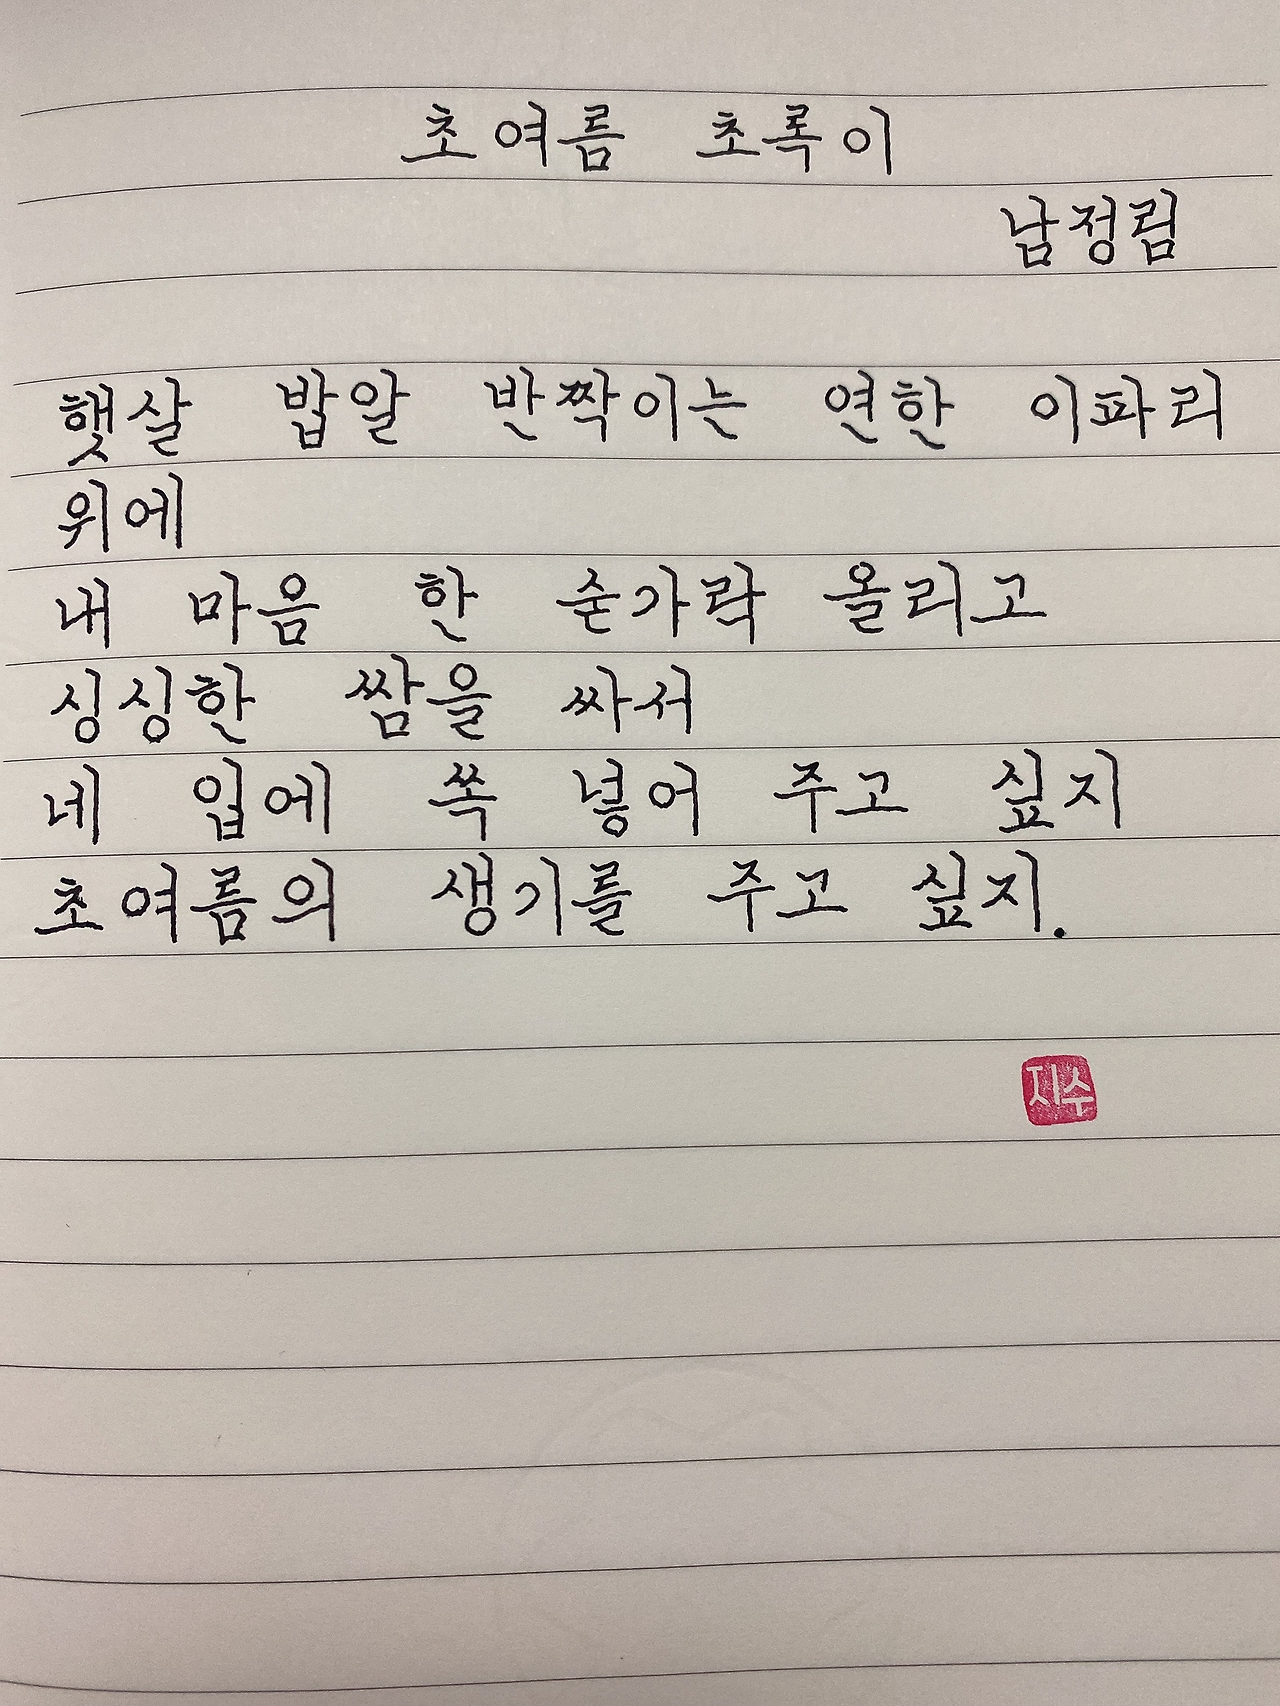 초여름 초록이
남정림
햇살 밥알 반짝이는 연한 이파리
위에
내 마음 한 숟가락 올리고
싱싱한 쌈을 싸서
네 입에 쏙 넣어 주고 싶지
초여름의 생기를 주고 싶지.
지수